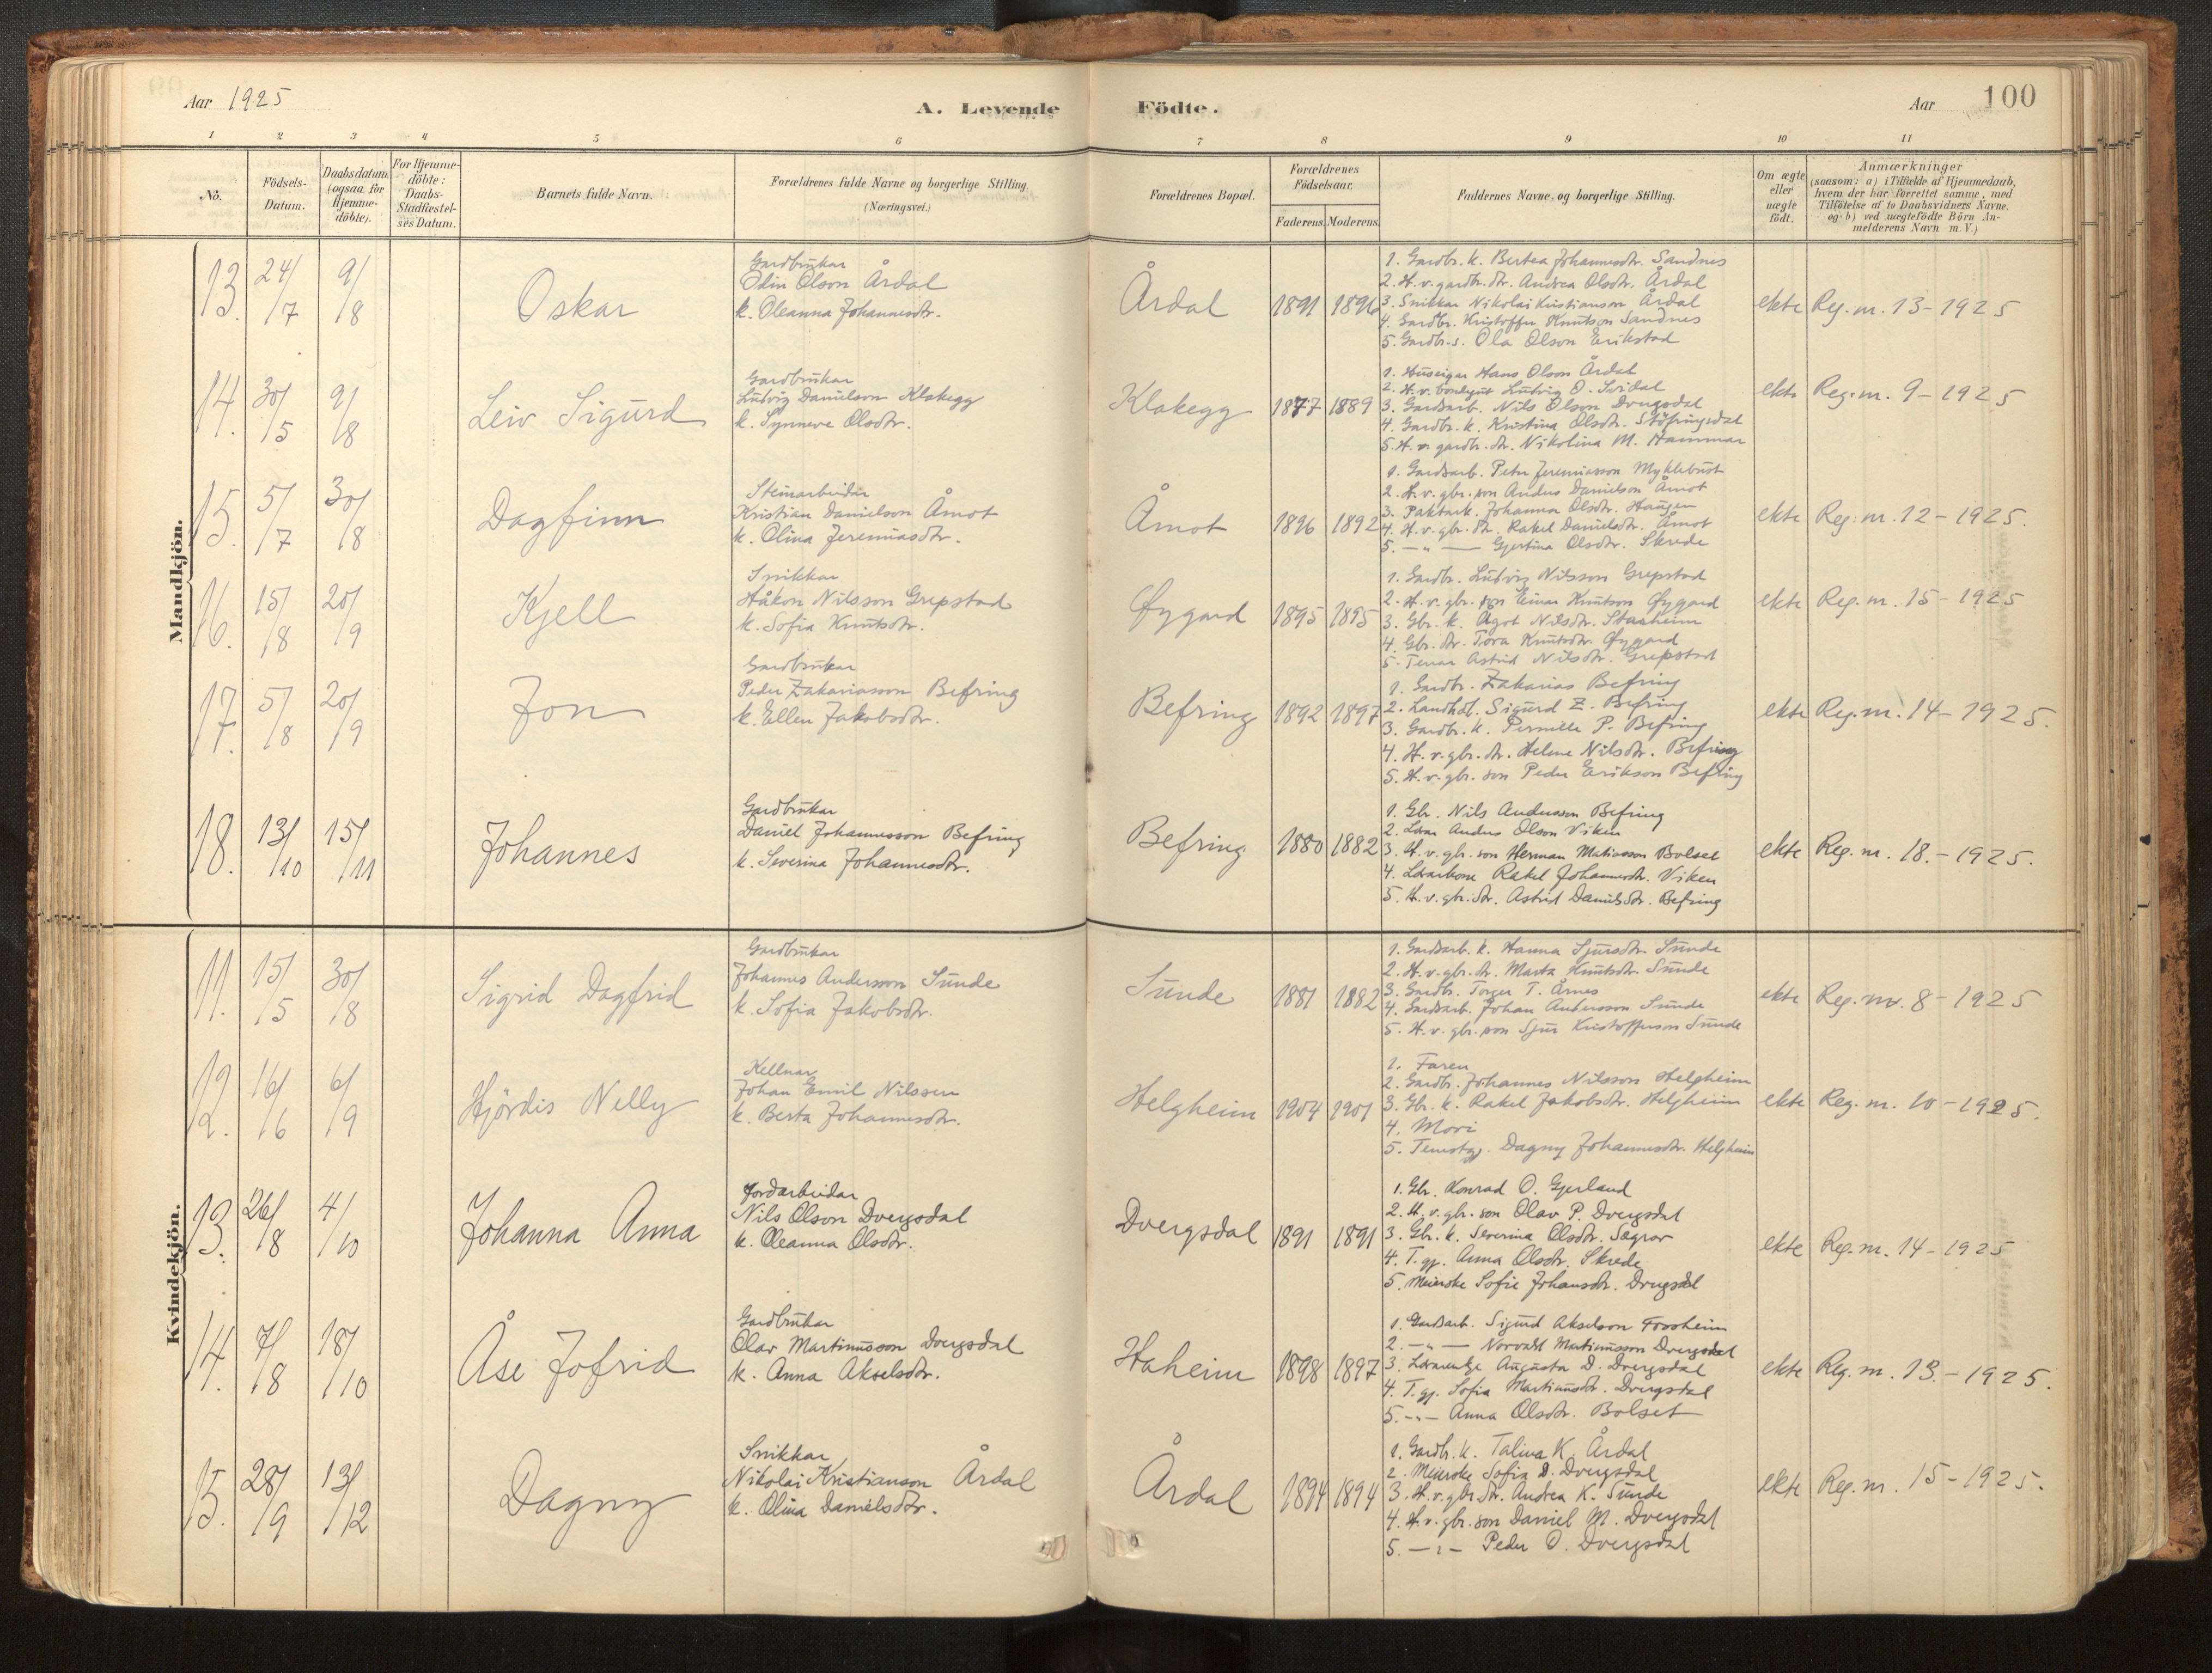 Aar 1925
A. Levende Födte.
Aar 100
1 2 3 4 5 6 7 8 9 10 11
No.
Födsels-
Datum.
Daabsdatum
(ogsaa for
Hjemme-
döbte).
For Hjemme-
döbte:
Daabs-
Stadfæstel-
ses Datum.
Barnets fulde Navn.
Forældrenes fulde Navne og borgerlige Stilling
(Næringsvei.)
Forældrenes Bopæl.
Forældrenes
Födselsaar.
Faderens. Moderens.
Faddernes Navne og borgerlige Stilling.
Om ægte
eller
uægte
födt.
Anmærkninger
(saasom: a) i Tilfælde af Hjemmedaab,
hvem der har forrettet samme, med
Tilföielse af to Daabsvidners Navne,
og b) ved uægtefödte Börn An-
melderens Navn m. V.)
Mandkjön.
13. 24/7 9/8 Oskar
Gardbrukar
Odin Olson Årdal
k. Oleanna Johannesdtr.
Årdal 1891 1896
1. Gardbr. k. Bertea Johannesdtr. Sandnes
2. H. v. gardbr. dtr. Andrea Olsdtr. Årdal
3. Snikkar Nikolai Kristianson Årdal
4. Gardbr. Kristoffer Knutson Sandnes
5. Gardbr. s. Ola Olson Erikstad
ekte Reg. nr. 13-1925
14. 30/5 9/8 Leiv Sigurd
Gardbrukar
Ludvig Danielson Klakegg
k. Synneve Olsdtr.
Klakegg 1877 1889
1. Huseigar Hans Olson Årdal
2. H. v. Ludvig O. Svidal
3. Gardsarb. Nils Olson Dvergsdal
4. Gardbr. k. Kristina Olsdtr. Støfringsdal
5. H. v. gardbr. dtr. Nikolina M. Hammar
ekte Reg. nr. 9-1925
15. 5/7 30/8 Dagfinn
Steinarbeidar
Kristian Danielson Åmot
k. Olina Jeremiasdtr.
Åmot 1896 1892
1. Gardsarb. Peter Jeremiasson Myklebust
2. H. v. gbr. son Anders Danielson Åmot
3. Johanna Olsdtr. Haugen
4. H. v. gbr. dtr. Rakel Danielsdtr. Åmot
5. -"- Gjertina Olsdtr. Skrede
ekte Reg. nr. 12-1925.
16. 15/8 20/9 Kjell
Snikkar
Håkon Nilsson Grepstad
k. Sofia Knutsdtr.
Øygard 1895 1895
1. Gardbr. Ludvig Nilsson Grepstad
2. H. v. gbr. son Einar Knutson Øygard
3. Gbr. k. Agot Nilsdtr. Staaheim
4. Gbr. dtr. Tora Knutsdtr. Øygard
5. Tenar Astrid Nilsdtr. Grepstad
ekte Reg. nr. 15-1925
17. 5/8 20/9 Jon
Gardbrukar
Peder Zakariasson Befring
k. Ellen Jakobsdtr.
Befring 1892 1897
1. Gardbr. Zakarias Befring
2. Landhdl. Sigurd Z. Befring
3. Gardbr. k. Pernille P. Befring
4. H. v. gbr. dtr. Helene Nilsdtr. Befring
5. H. v. gbr. son Peder Erikson Befring
ekte Reg. nr. 14-1925.
18. 13/10 15/11 Johannes
Gardbrukar
Daniel Johannesson Befring
k. Severina Johannesdtr.
Befring 1880 1882
1. Gbr. Nils Andersson Befring
2. Lærar Anders Olson Viken
3. H. v. gbr. son Herman Matiasson Bolset
4. Lærarkone Rakel Johannesdtr. Viken
5. H. v. gbr. dtr. Astrid Danielsdtr. Befring
ekte Reg. nr. 18.-1925.
Kvindekjön.
11. 15/5 30/8 Sigrid Dagfrid
Gardbrukar
Johannes Anderson Sunde
k. Sofia Jakobsdtr.
Sunde 1881 1882
1. Gardsarb. k. Hanna Sjursdtr. Sunde
2. H. v. gbr. dtr. Marta Knutsdtr. Sunde
3. Gardbr. Torger T. Årnes
4. Gardsarb. Johan Andersson Sunde
5. H. v. gbr. son Sjur Kristofferson Sunde
ekte Reg. nr. 8-1925
12. 16/6 6/9 Hjördis Nelly
Kellnar
Johan Emil Nilssen
k. Berta Johannesdtr.
Helgheim 1904 1901
1. Faren
2. Gardbr. Johannes Nilsson Helgheim
3. Gbr. k. Rakel Jakobsdtr. Helgheim
4. Mori
5. Tenestgj. Dagny Johannesdtr. Helgheim
ekte Reg. nr. 10-1925.
13. 26/8 4/10 Johanna Anna
Jordarbeidar
Nils Olson Dvergsdal
k. Oleanna Olsdtr.
Dvergsdal 1891 1891
1. Gbr. Konrad O. Gjerland
2. H. v. gbr. son Olav P. Dvergsdal
3. Gbr. k. Severina Olsdtr. Sægrov
4. T. gj. Anna Olsdtr. Skrede
5. Meierske Sofie Johansdtr. Dvergsdal
ekte Reg. nr. 14-1925
14. 7/8 18/10 Åse Jofrid
Gardbrukar
Olav Martinusson Dvergsdal
k. Anna Akselsdtr.
Haheim 1898 1897
1. Gardsarb. Sigurd Akselson Fossheim
2. -"- Norvald Martinusson Dvergsdal
3. Augusta D. Dvergsdal
4. T. gj. Sofia Martinusdtr. Dvergsdal
5. -"- Anna Olsdtr. Bolset
ekte Reg. nr. 13.-1925.
15. 28/9 13/12 Dagny
Snikkar
Nikolai Kristianson Årdal
k. Olina Danielsdtr.
Årdal 1894 1894
1. Gardbr. k. Talina K. Årdal
2. Meierske Sofia D. Dvergsdal
3. H. v. gbr. dtr. Andrea K. Sunde
4. H. v. gbr. son Daniel M. Dvergsdal
5. -"- Peder O. Dvergsdal
ekte Reg. nr. 15-1925.